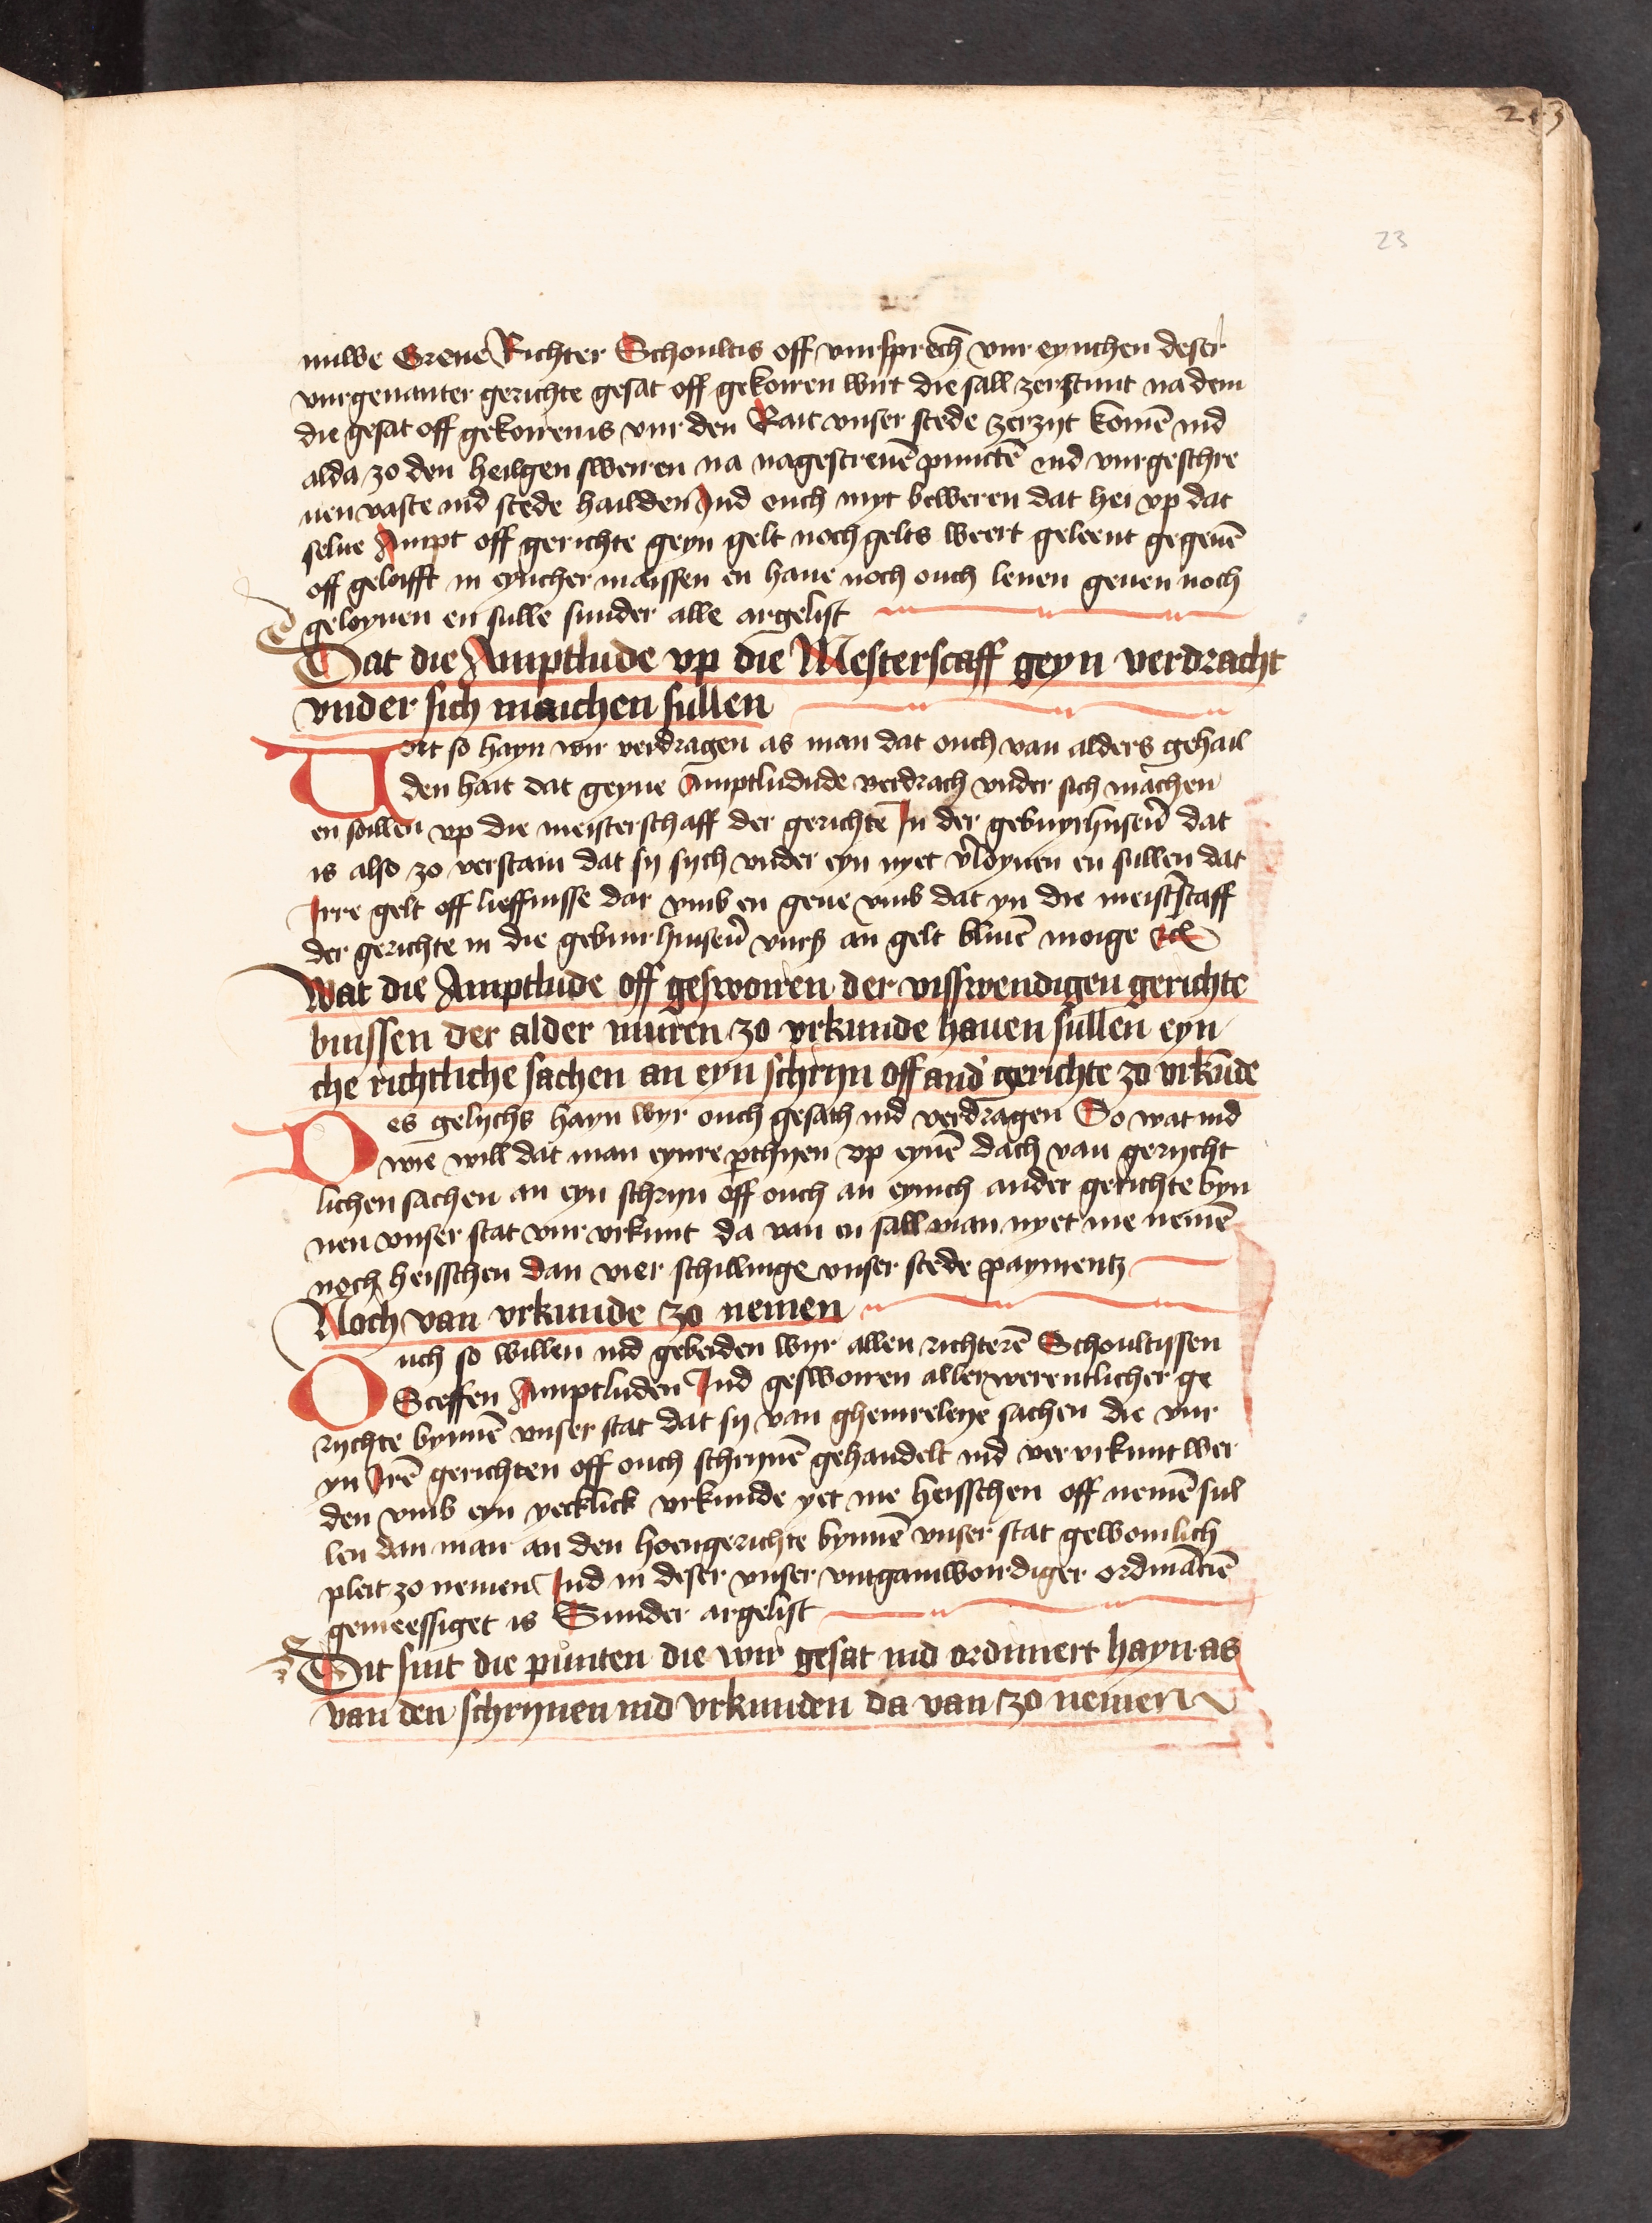 23
nuwe Greue Richter Schoultis off vursprech̄ vur eynichen deser
vurgenanter gerichte gesat off gekoiren wirt die sall zerstunt na dem
die gesat off gekoiren is vur den Rait vnser stede zerzijt komē ind
alda zo den heilgen sweiren na nagescreuē punctē ind vurgeschre
uen vaste ind stede hailden Ind ouch myt beweren dat hei vp dat
selue Ampt off gerichte geyn gelt noch gelts weert geleent gegeuē
off geloifft in eyncher maissen en haue noch ouch lenen geuen noch
geloynen en sulle sunder alle argelist
Dat die Amptlude vp die Mesterscaff geyn verdracht
vnder sich maichen sullen
Vort so hayn wir verdragen as man dat ouch van alders gehail
den hait dat geyne Amptludude verdrach vnder sich machen
en soillen vp die meisterschaff der gerichtē In der gebuyrhuserē dat
is also zo verstain dat sy sych vnder eyn nyet v̄loynen en sullen dat
Irre gelt off lieffnisse dar vmb en geue vmb dat yn die meist̄scaff
der gerichte in die gebuurhuserē vurß an gelt bliuē moige etc̄
Wat die Amptlude off geswoiren der visswendigen gerichte
buissen der alder muren zo vrkunde hauen sullen eyn
che richtliche sachen an eyn schryn off and' gerichte zo vrkūde
Des gelychs hayn wyr ouch gesatz ind verdragen So wat ind
wie vill dat man eynre p̲thyen vp eynē dach van gerycht
lichen sachen an eyn schryn off ouch an eynich ander gerichte byn
nen vnser stat vur vrkunt da van en sall man nyet me nemē
noch heisschen dan vier schillinge vnser stede paymentz
Noch van vrkunde zo nemen
Ouch so willen ind gebeiden wyr allen richterē Schoultissen
Sceffen Amptluden Ind geswoiren aller werentlicher ge
rychte bynnē vnser stat dat sy van gheinreleye sachen die vur
yn Irē gerichten off ouch schrynē gehandelt ind ver vrkunt wer
den vmb eyn yecklick vrkunde yet me heisschen off nemē sul
len dan man an den hoengerichte bynnē vnser stat gewoinlich
pleit zo nemen Ind in deser vnser vntgainwoirdiger ordināciē
gemeessiget is Sunder argelist
Dit sint die punten die wir gesat ind ordiniert hayn as
van den schrynen ind vrkunden da van zo nemen